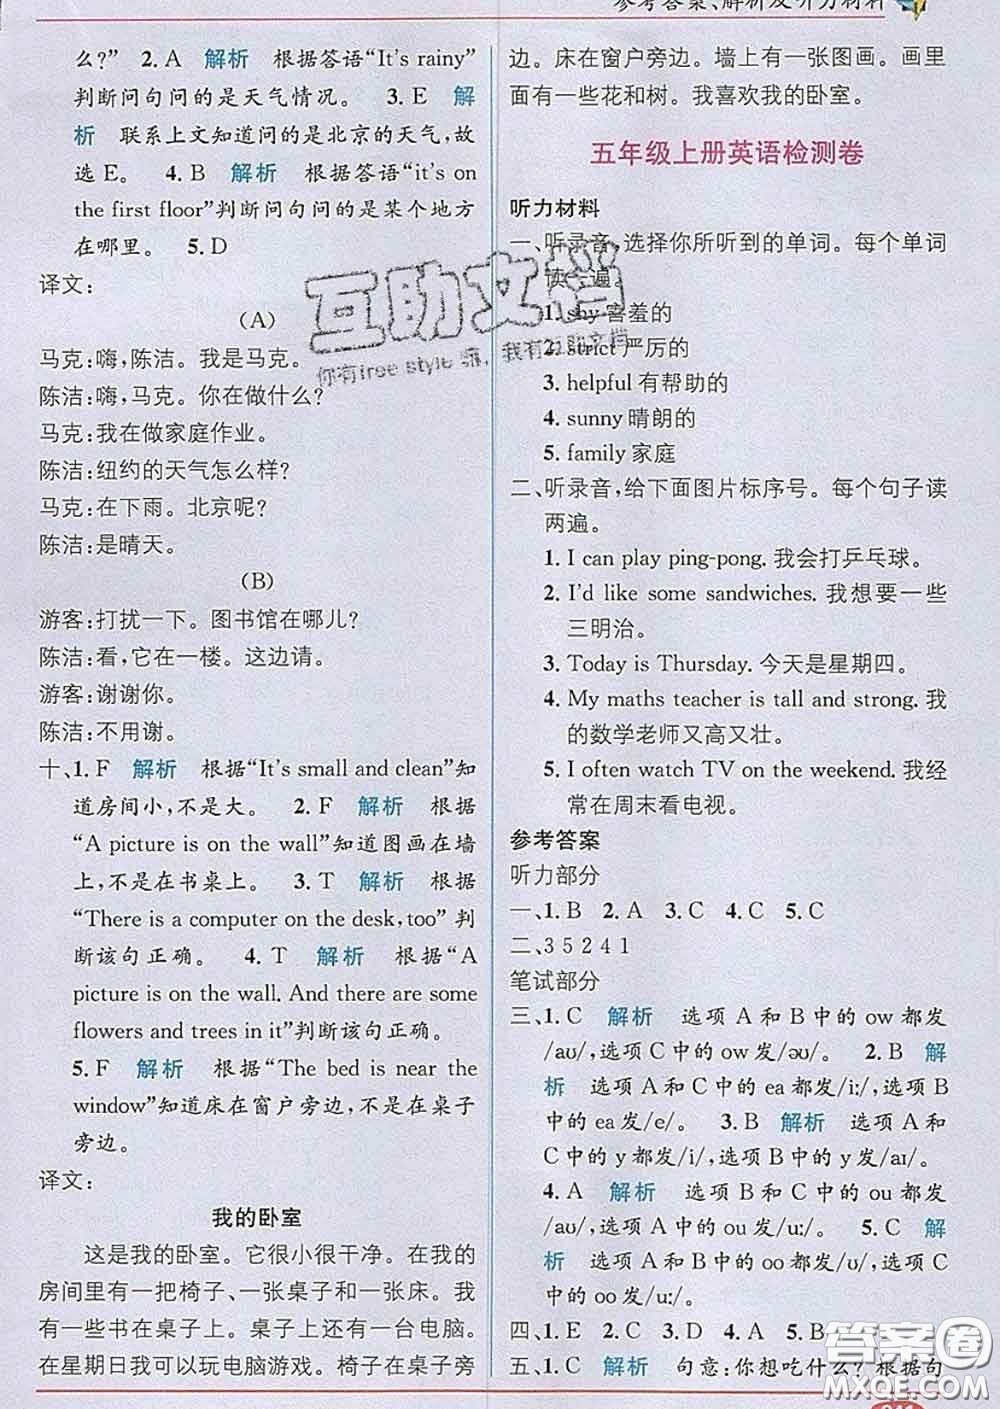 参考答案、解析及听力材料
么?” 2. A 解析 根据答语“It's rainy”
判断问句问的是天气情况。 3. E 解
析 联系上文知道问的是北京的天气,故
选E。 4. B 解析 根据答语“it's on
the first floor”判断问句问的是某个地方
在哪里。 5. D
译文:
(A)
马克:嗨,陈洁。我是马克。
陈洁:嗨,马克。你在做什么?
马克:我在做家庭作业。
陈洁:纽约的天气怎么样?
马克:在下雨。北京呢?
陈洁:是晴天。
(B)
游客:打扰一下。图书馆在哪儿?
陈洁:看,它在一楼。这边请。
游客:谢谢你。
陈洁:不用谢。
十、1. F 解析 根据“It's small and clean”知
道房间小,不是大。 2. F 解析 根据
“A picture is on the wall”知道图画在墙
上,不是在书桌上。 3. T 解析 根据
“There is a computer on the desk, too” 判
断该句正确。 4. T 解析 根据“A
picture is on the wall. And there are some
flowers and trees in it”判断该句正确。
5. F 解析 根据“The bed is near the
window”知道床在窗户旁边,不是在桌子
旁边。
译文:
我的卧室
这是我的卧室。它很小很干净。在我的
房间里有一把椅子、一张桌子和一张床。我
有一些书在桌子上。桌子上还有一台电脑。
在星期日我可以玩电脑游戏。椅子在桌子旁
边。床在窗户旁边。墙上有一张图画。画里
面有一些花和树。我喜欢我的卧室。
五年级上册英语检测卷
听力材料
一、听录音,选择你所听到的单词。每个单词
读一遍。
1. shy 害羞的
2. strict 严厉的
3. helpful 有帮助的
4. sunny 晴朗的
5. family 家庭
二、听录音,给下面图片标序号。每个句子读
两遍。
1. I can play ping-pong. 我会打乒乓球。
2. I'd like some sandwiches. 我想要一些
三明治。
3. Today is Thursday. 今天是星期四。
4. My maths teacher is tall and strong. 我
的数学老师又高又壮。
5. I often watch TV on the weekend. 我经
常在周末看电视。
参考答案
听力部分
一、1. B 2. A 3. C 4. C 5. C
二、3 5 2 4 1
笔试部分
三、1. C 解析 选项 A 和 B 中的 ow 都发
/aʊ/,选项 C 中的 ow 发/əʊ/。 2. B 解
析 选项 A 和 C 中的 ea 都发/iː/,选项 B
中的 ea 发/e/。 3. B 解析 选项 A 和
C 中的 y 都发/i/,选项 B 中的 y 发/aɪ/。
4. A 解析 选项 B 和 C 中的 ou 都发
/aʊ/,选项 A 中的 ou 发/uː/。 5. C 解
析 选项 A 和 B 中的 oo 都发/ʊ/,选项 C
中的 oo 发/uː/。
四、1. E 2. C 3. D 4. A 5. B
五、1. C 解析 句意:你想吃什么? 根据句
互助文档
你有free style 嘛,我有互助文档
答案圈
MXQE.COM